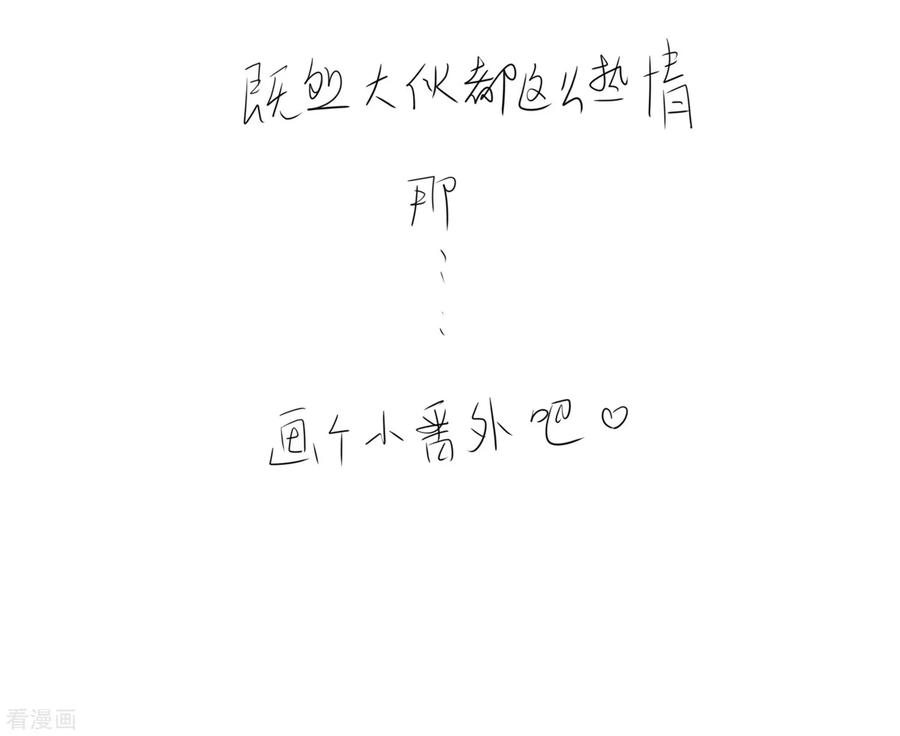 既然大伙都这么热情
那
……
画个小番外吧♡
看漫画